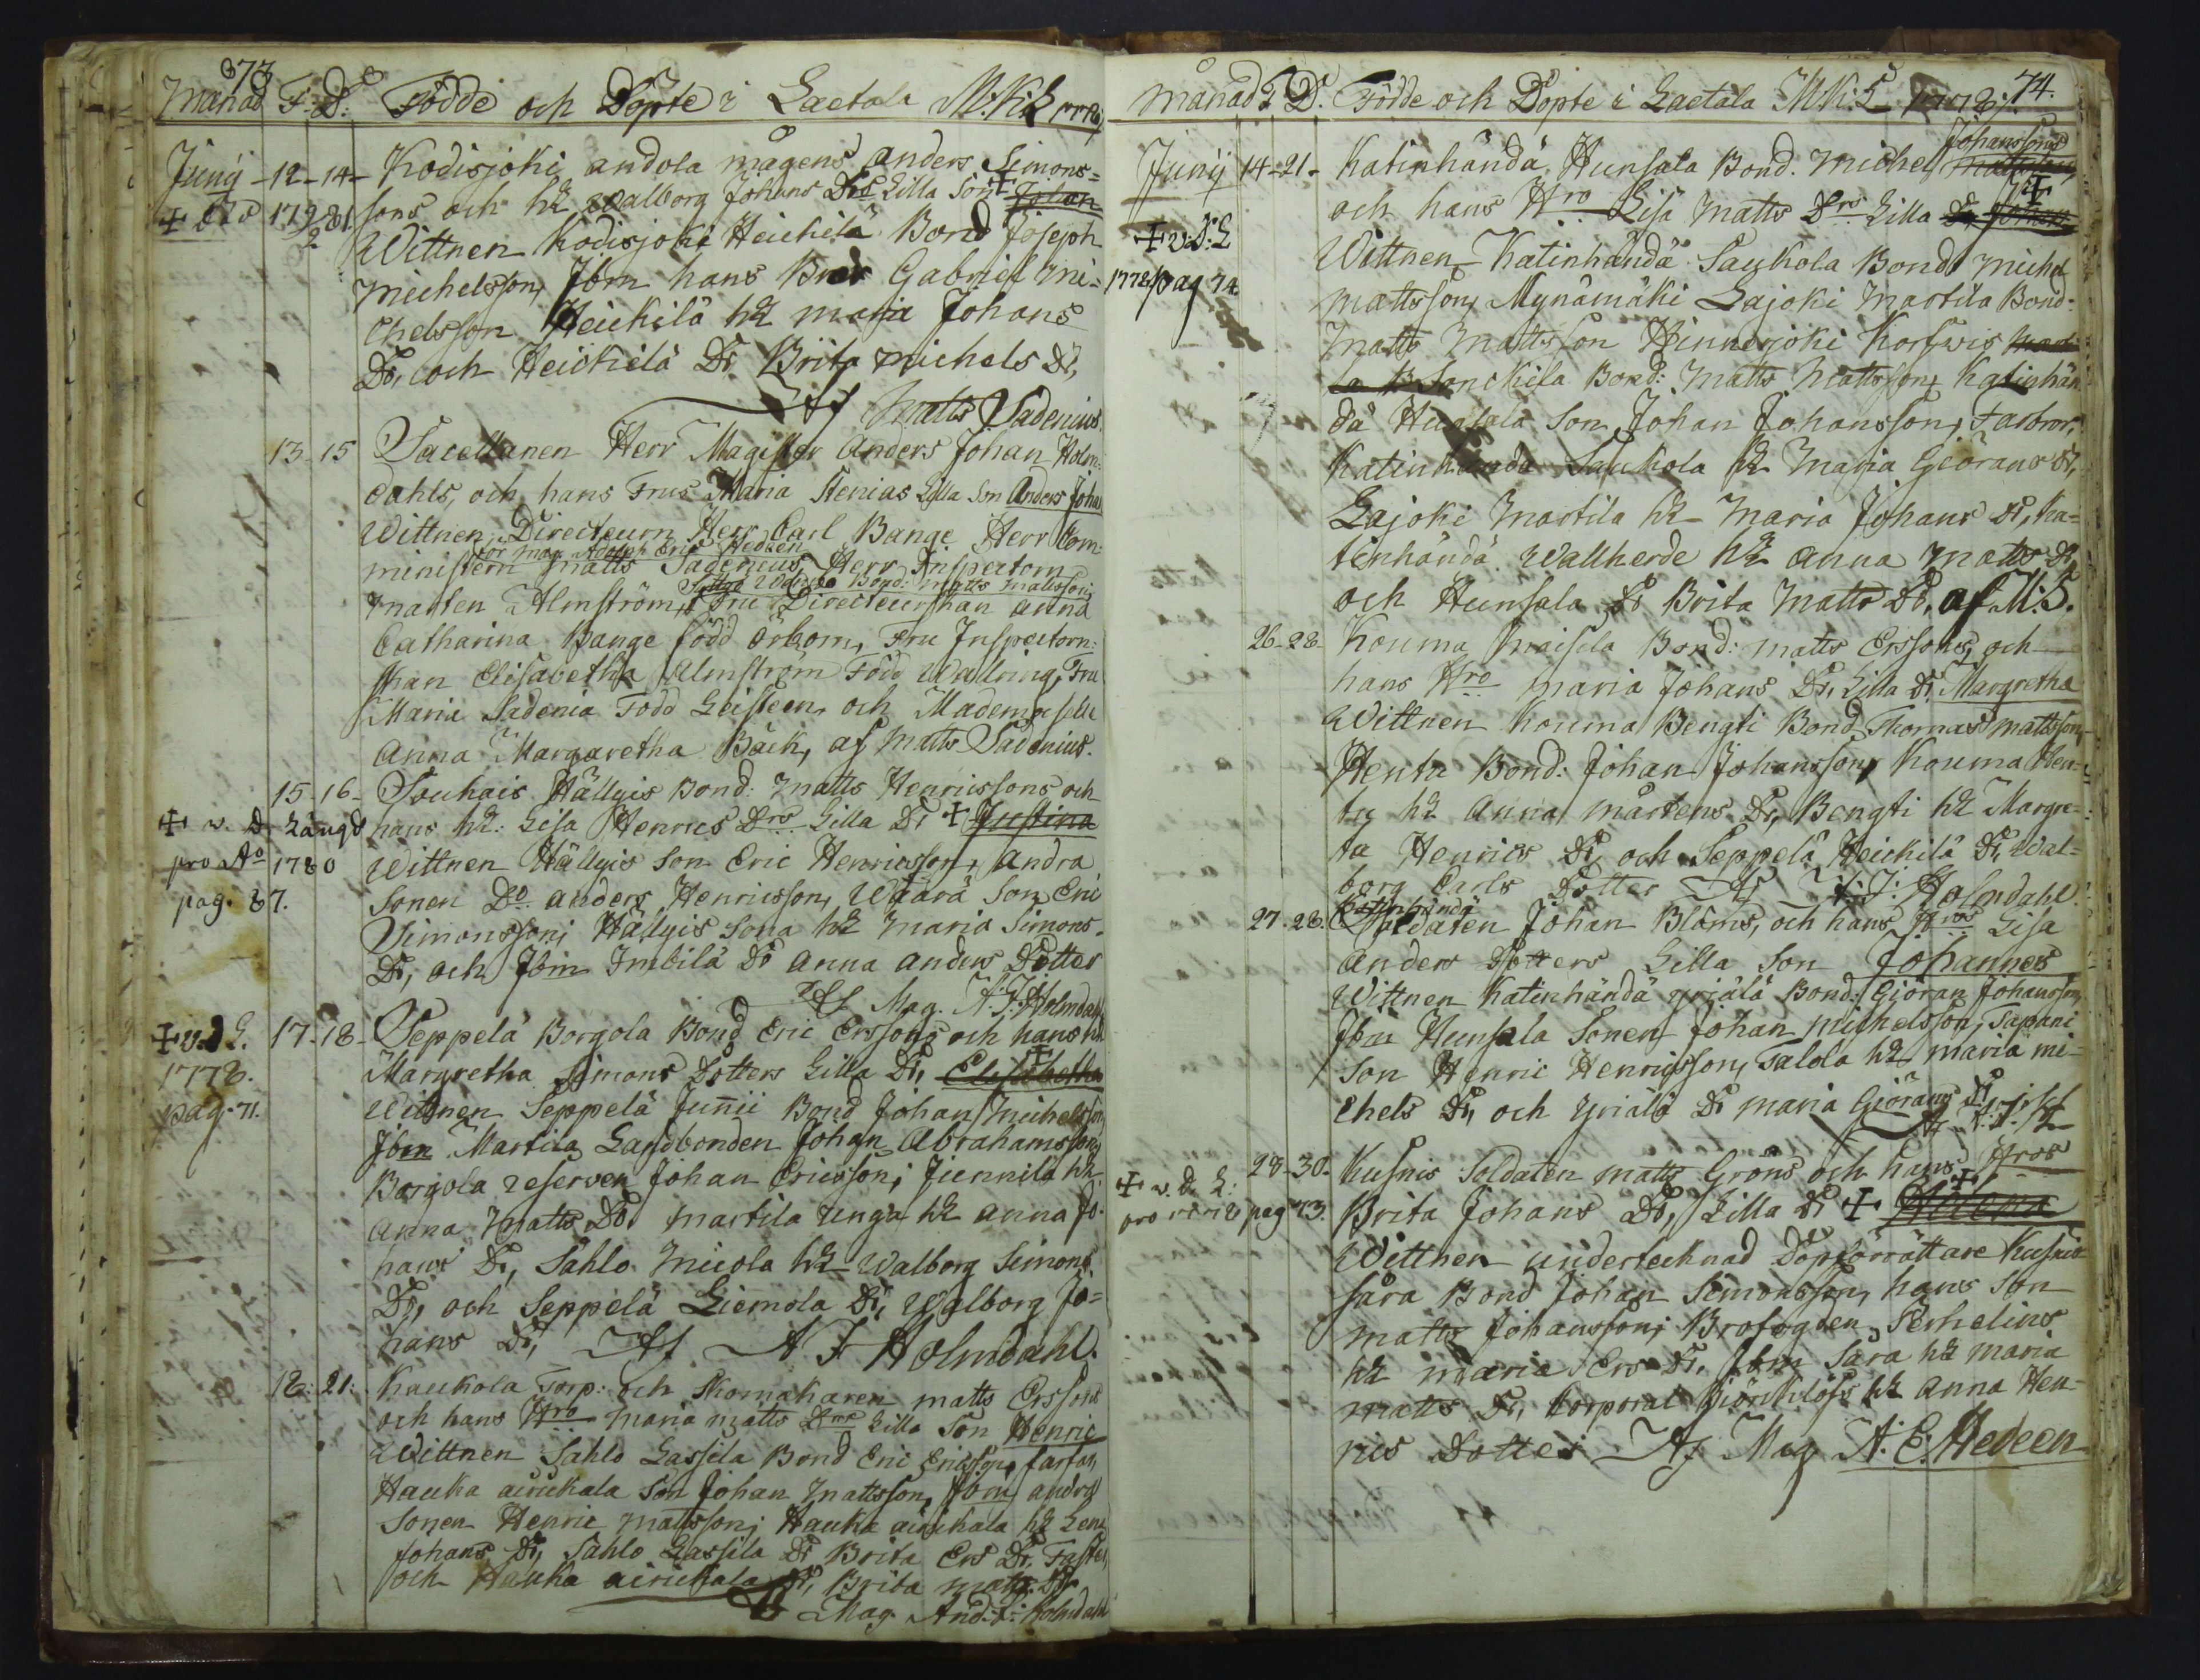 73
Månad F: D: Födde och Döpte i Laetala M: K: L 1778
Junij 12 14 Kodisjoki andola mågens Anders Simons=
sons och h: Walborg Johans Drs Lilla Son + Johan
Wittnen Kodisjoki Heickilä Bond Joseph
Michelsson, Jbm hans Bror Gabriel Mi=
chelsson Heickilä h: maria Johans
Dr, och Heickilä Dr Brita michels Dr,
Af Matts Sadenius.
13 15 Sacellanen Herr Magister Anders Johan Holm=
dahls, och hans Frus Maria Stenias Lilla Son Anders Johan
Wittnen, Directeurn Herr Carl Bange Herr Com=
Herr Mag. Adolph Eric Hedeen
ministern Matts Sadenius, Herr Inspectorn
Bond: Matts Mattsson,
Marten Almström, Fru Directeurskan Anna
Catharina Bange född Örbom, Fru Inspectorn=
skan Elisabetha Almström Född Wallring, Fru
Maria Sadenia Född Leisteen, och Mademoiselle
Anna Margaretha Bäck, af Matts Sadenius.
15 16 Souhais Hällyis Bond: Matts Henricssons och
+ w. D. Längd hans h: Lisa Henrics Drs Lilla Dr + Justina
pro Ao 1780 Wittnen Hällyis Son Eric Henricsson, andra
pag. 87. Sonen Do Anders Henricsson, Waara Son Eric
Simonsson; Hällyis Sona h: Maria Simons
Dr, och Jbm Imbilä Dr Anna Anders Dotter
Af Mag. A. J. Holmdahl
+ v. d. L. 17 18 Seppelä Borgola Bond Eric Ersson, och hans h:
1778. Margretha Simons Dotters Lilla Dr, + Elisabetha
pag. 71. Wittnen Seppelä Junii Bond Johan Michelsson,
Jbm Martila Landbonden Johan Abrahamsson,
Borgola reserven Johan Ericsson; Junnila h:
Anna Matts Dr martila unga h: Anna Jo=
hans Dr, Sahlo Micola h: Walborg Simons
Dr, och Seppelä Liemola Dr, Walborg Jo=
hans Dr, Af A J Holmdahl.
18: 21: Kaukola Torp: och Skomakaren matts Erssons
och hans Hro Maria Matts Drs Lilla Son Henric
Wittnen Sahlo Lassila Bond Eric Ericsson, farfar,
Hauka airickala Son Johan Mattsson, Jbm andra
Sonen Henric mattsson; Hauka airikala h: Lena
Johans Dr, Sahlo Lassila Dr Brita Ers Dr. Faster,
och Hauka airickala Dr, Brita Matts Dr.
Af Mag. And: J: Holmdahl
74.
Månad F D. Födde och Döpte i Laetala M: K: L 1778
Johanssons
Junij 14 21 Katinhändä Hunsala Bond. Michel
och hans Hro Lisa Matts Drs Lilla Dr, +
+ v: d: L Wittnen, Katinhändä Saukola Bond Michel
1778 pag 74 mattsson, Mynämäki Lajoki Martila Bond
Matts Mattsson Hinnerjoki Korfwis
Sonckila Bond: Matts Mattsson, Katinhän
dä Hunsala Son Johan Johansson, Farbror,
Katinhändä Saukola h: Maria Giörans Dr,
Lajoki Martila h: Maria Johans Dr, Ka=
tinhändä Wallherde h: Anna Matts Dr,
och Hunsala Dr Brita Matts Dr, af M: S.
26 28 Kouma Maisela Bond: matts Erssons, och
hans Hro maria Johans Dr, Lilla Dr Margretha
Wittnen Kouma Bengti Bond Thomas mattsson,
Hentu Bond: Johan Johansson, Kouma Hen=
tu h: Anna mårtens Dr, Bengti h: Margre=
ta Henrics Dr, och Seppelä Heickilä Dr, Wal=
borg Carls Dotter Af A: J: Holmdahl.
Katinhändä
27. 28. Soldaten Johan Bloms, och hans Hros Lisa
Anders Dotters Lilla Son Johannes
Wittnen Katinhändä yrjälä Bond: Giöran Johansson,
Jbm Hunsala Sonen Johan Michelsson, Tapani
Son Henric Henricsson, Talola h: maria mi=
chels Dr, och yrjälä Dr maria Giörans Dr
28 30 Kusnis Soldaten matts Gröns och hans Hros
+ w. d. L: Brita Johans Dr, Lilla Dr + Helena
pro 1778 pag 73. Wittnen undertecknad Döpförrättare Kusnis
sara Bond Johan Simonsson, hans Son
matts Johansson; Brofogden Perhelins
h: maria Ers Dr, Jbm Sara h: maria
matts Dr, Korporal Biörcklöfs h: Anna Hen=
rics Dotter Af Mag A. E. Hedeen